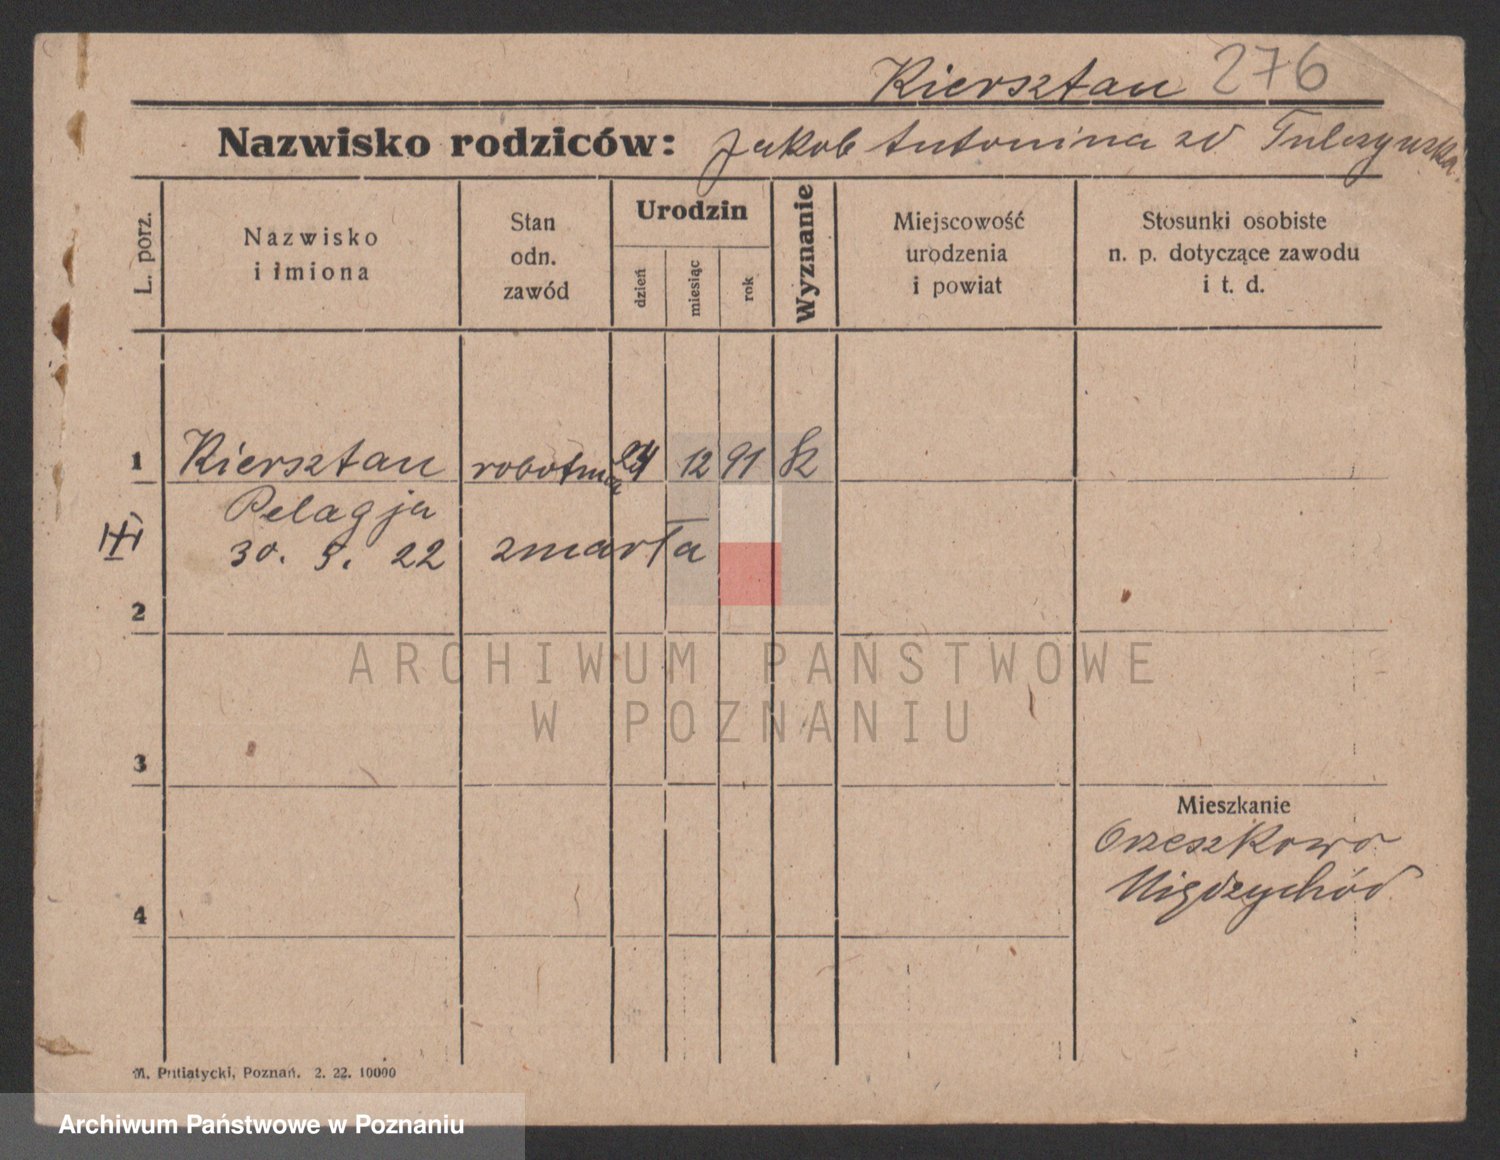 Kiersztan 276
Nazwisko rodziców: Jakob Antonina zd Tulczyńska
L. porz.
Nazwisko
i imiona
Stan
odn.
zawód
Urodzin
dzień
miesiąc
rok
Wyznanie
Miejscowość
urodzenia
i powiat
Stosunki osobiste
n. p. dotyczące zawodu
i t. d.
1 Kiersztan robotnica 24 12 91
Pelagja
30. 5. 22 zmarła
2
ARCHIWUM PAŃSTWOWE
W POZNANIU
3
Mieszkanie
Orzeszkowo
Międzychód
4
M. Putiatycki, Poznań. 2. 22. 10000
Archiwum Państwowe w Poznaniu